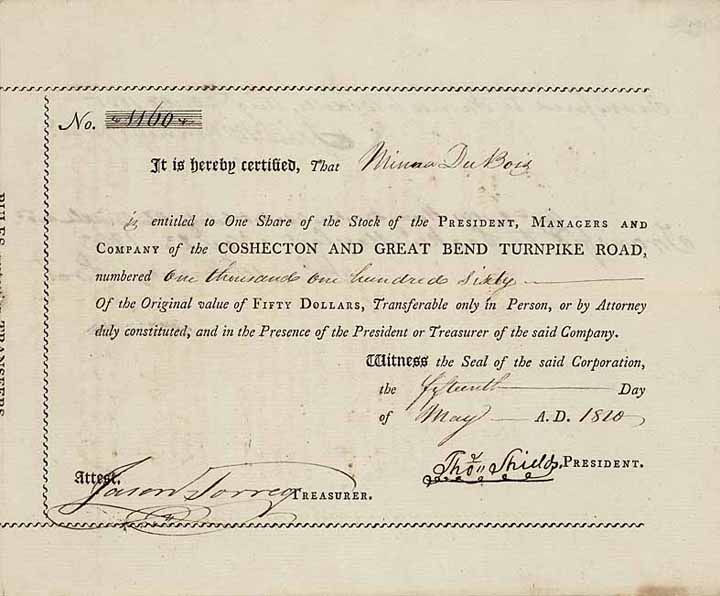 No. 1160
It is hereby certified, That Minna Du Bois
is entitled to One Share of the Stock of the PRESIDENT, MANAGERS AND
COMPANY of the COSHECTON AND GREAT BEND TURNPIKE ROAD,
numbered one thousand one hundred sixty
Of the Original value of FIFTY DOLLARS, Transferable only in Person, or by Attorney
duly constituted, and in the Presence of the President or Treasurer of the said Company.
Witness the Seal of the said Corporation,
the fifteenth Day
of May A. D. 1810
Thos. Shields, PRESIDENT.
Attest.
Jason Torrey TREASURER.